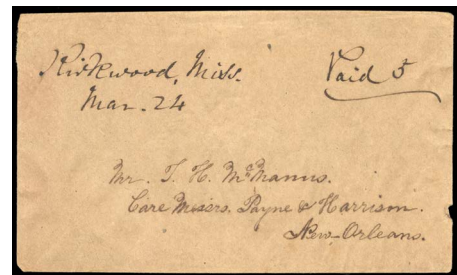 Kirkwood, Miss. Paid 5
Mar. 24
Mr. T. H. McManus.
Care Messrs. Payne & Harrison.
New Orleans.